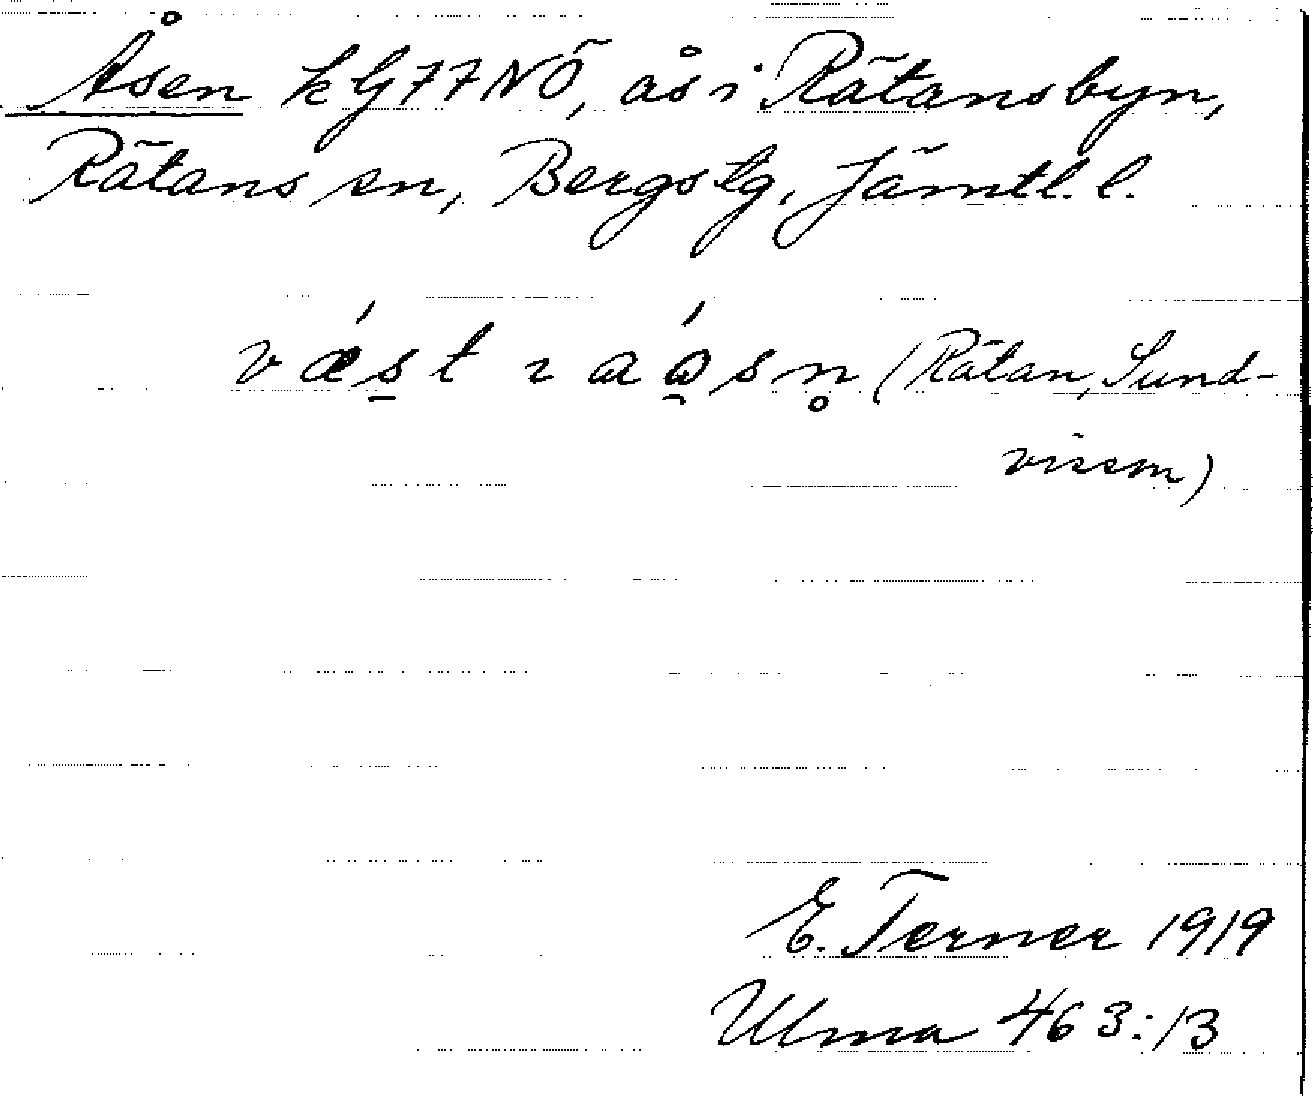 Åsen kG77NÖ, ås i Rätansbyn,
Rätans sn, Bergs tg. Jämtl. l.
væ´s̠t ıaå´sn̥ (Rätan, Sund-
vissm)
E. Terner 1919
Ulma 463:13